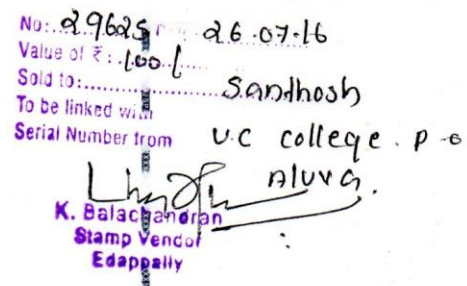 No: 29625 26.07.16
Value of ₹ : 100/
Sold to: Sandhosh
To be linked with
Serial Number from U.C college. P-o
Aluva.
K. Balachandran
Stamp Vendor
Edappally